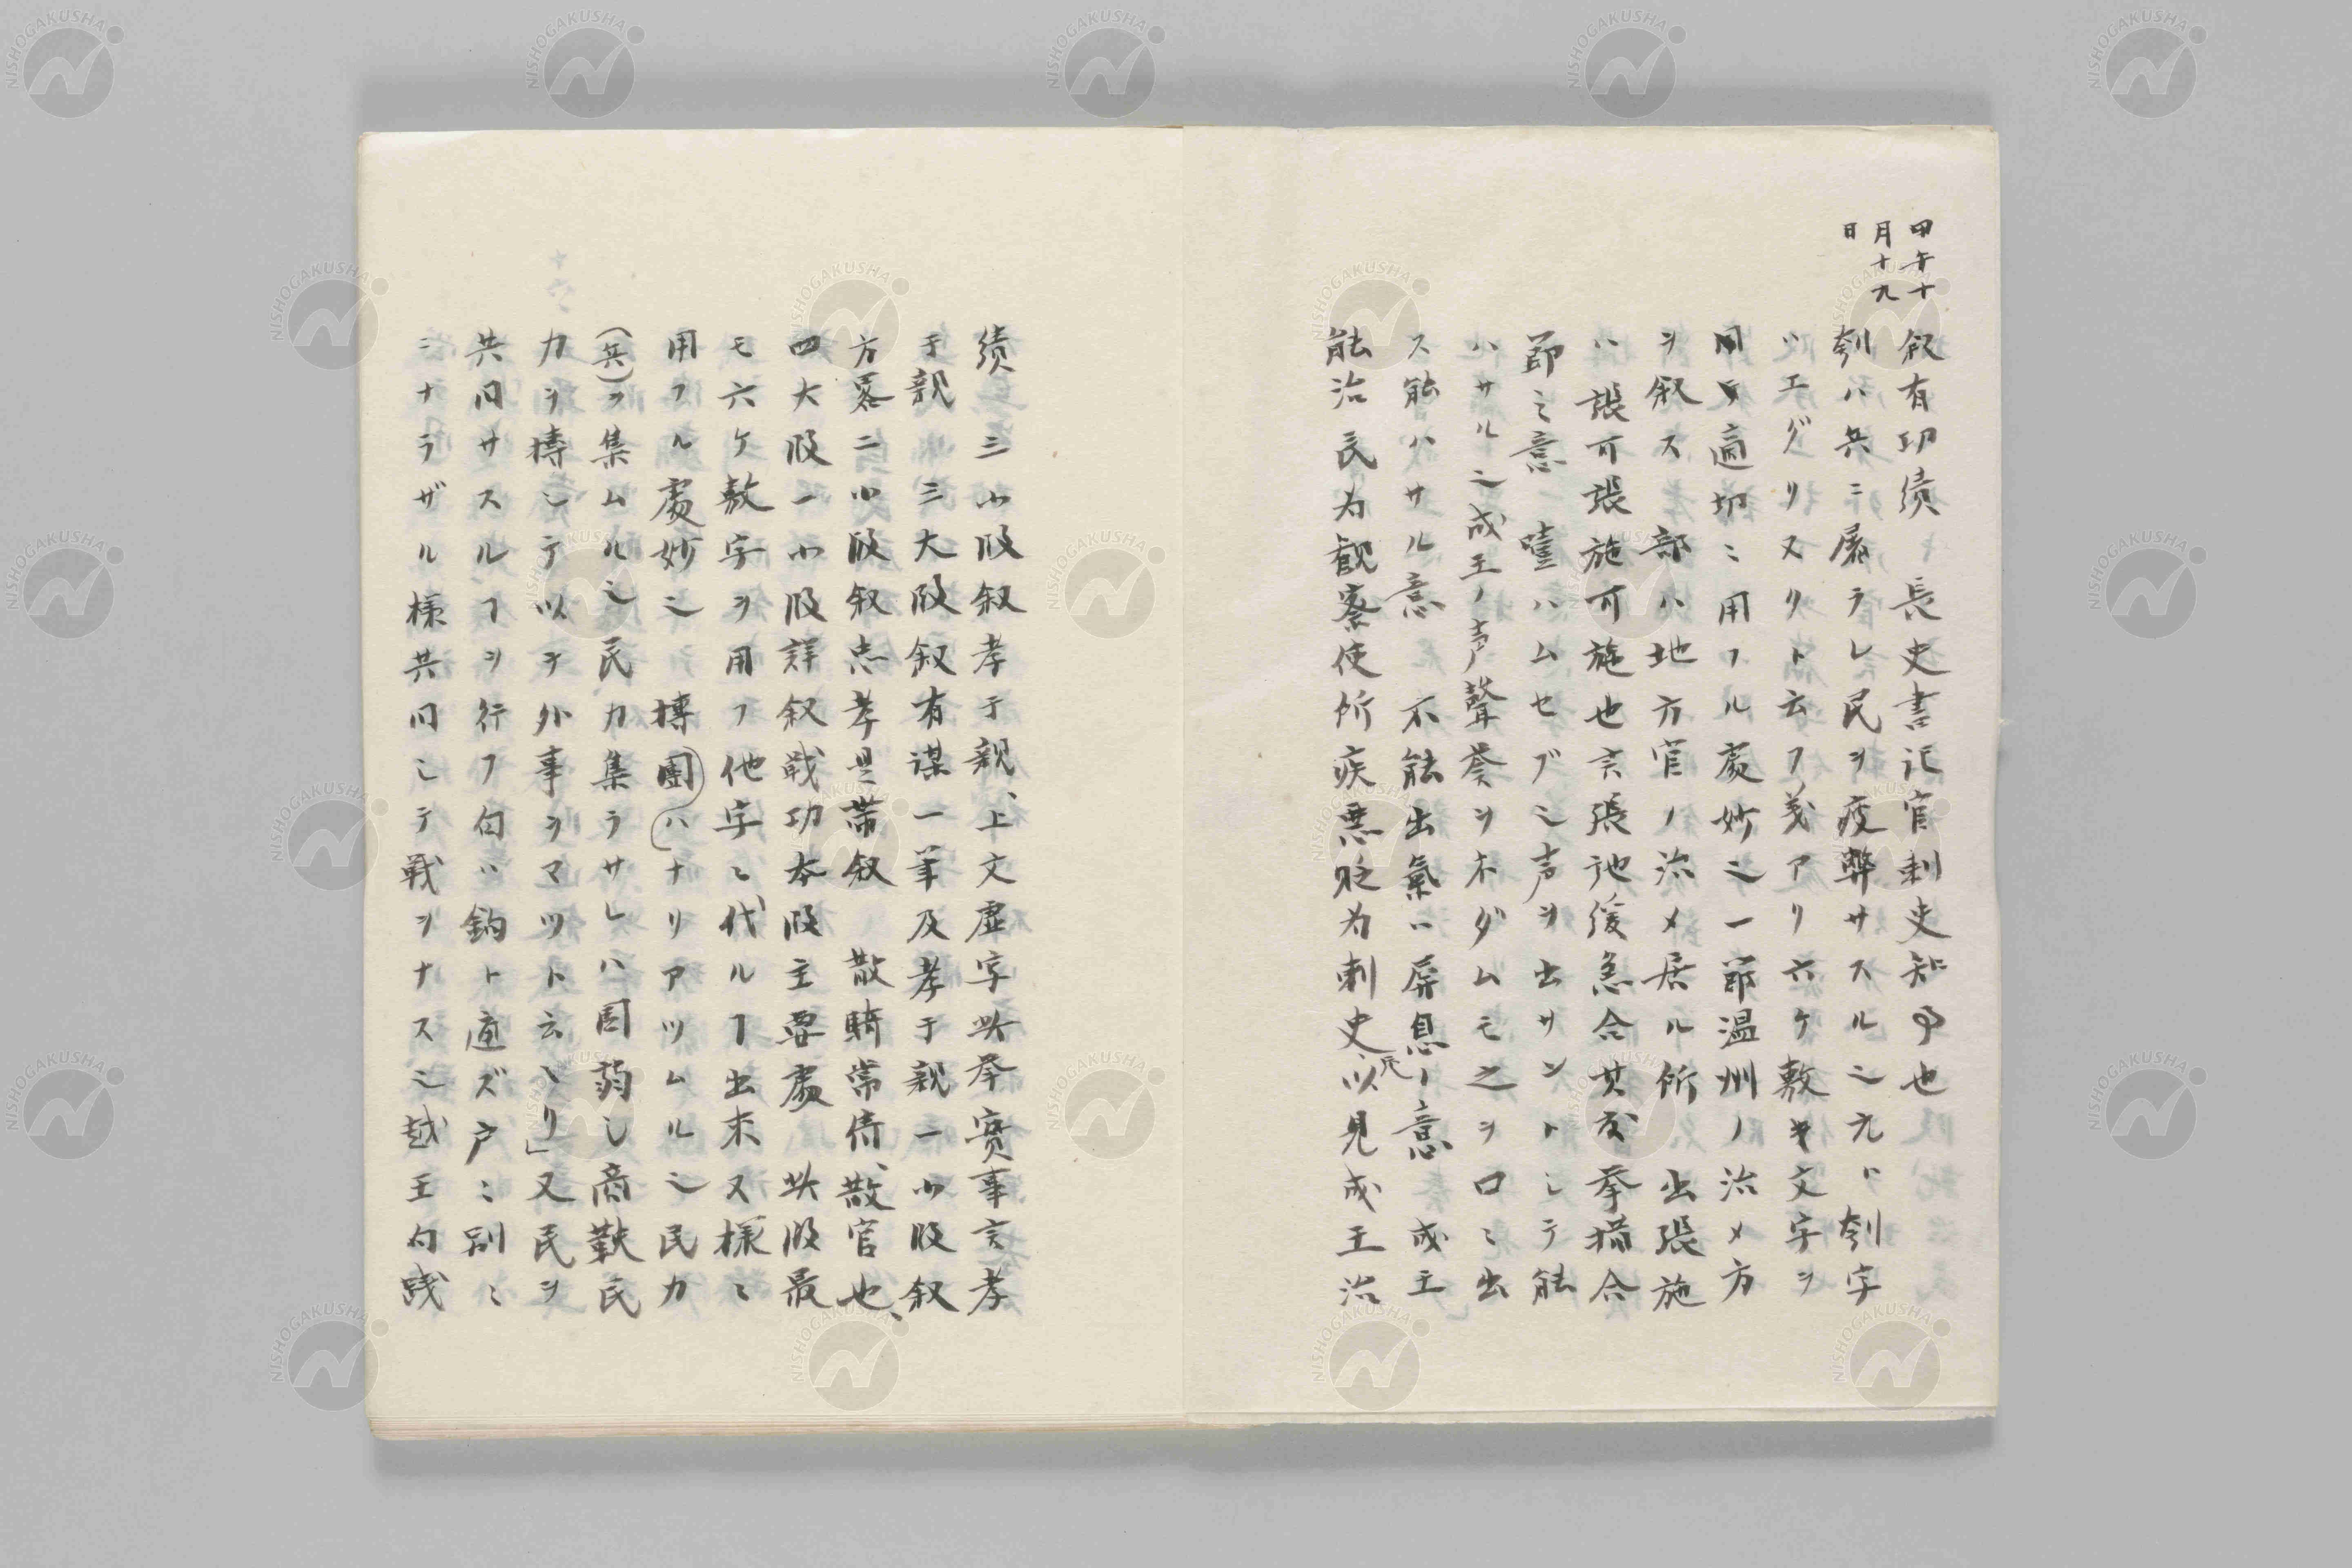 甲午十
月十九
日
叙有功績 長史書記官刺史知叓也
刳ハ兵ニ屠ラレ民ヲ疲弊サスル之元ト刳字
ハエグリヌクト云フ義アリ六ケ敷キ文字ヲ
用テ適切ニ用フル處妙之一節温州ノ治メ方
ヲ叙ス 部ハ地方官ノ治メ居ル所 出張施
ハ張可張施可施也言張弛緩急合其度挙措合
節之意 噎ハムセブ之声ヲ出サントシテ能
ハサル之成王ノ声聲誉ヲネダムモ之ヲ口ニ出
ス能ハサル意 不能出氣ハ屏息ノ意 成王
能治民为観察使所疾悪貶为刺史以見成王治
績 三小段叙孝于親、上文虚字此挙實事言孝
于親 三大段叙有謀一筆及孝于親一小段叙
方畧二小段叙忠孝是帯叙 散騎常侍、散官也、
四大段一小段詳叙戦功本段主要處 此段最
モ六ケ敷字ヲ用フ他字ニ代ルヿ出来ヌ様ニ
用フル處妙之 摶團ハナリアツムル之民力
(兵)ヲ集ムル之民力集ラサレハ国弱し商鞅民
力ヲ摶シテ以テ外事ヲマツト云ヘリ」又民ヲ
共同サスルヿヲ行フ 鈎ト通ズ戸ニ別ニ
ニナラザル様共同シテ戦ヲナス之越王勾践